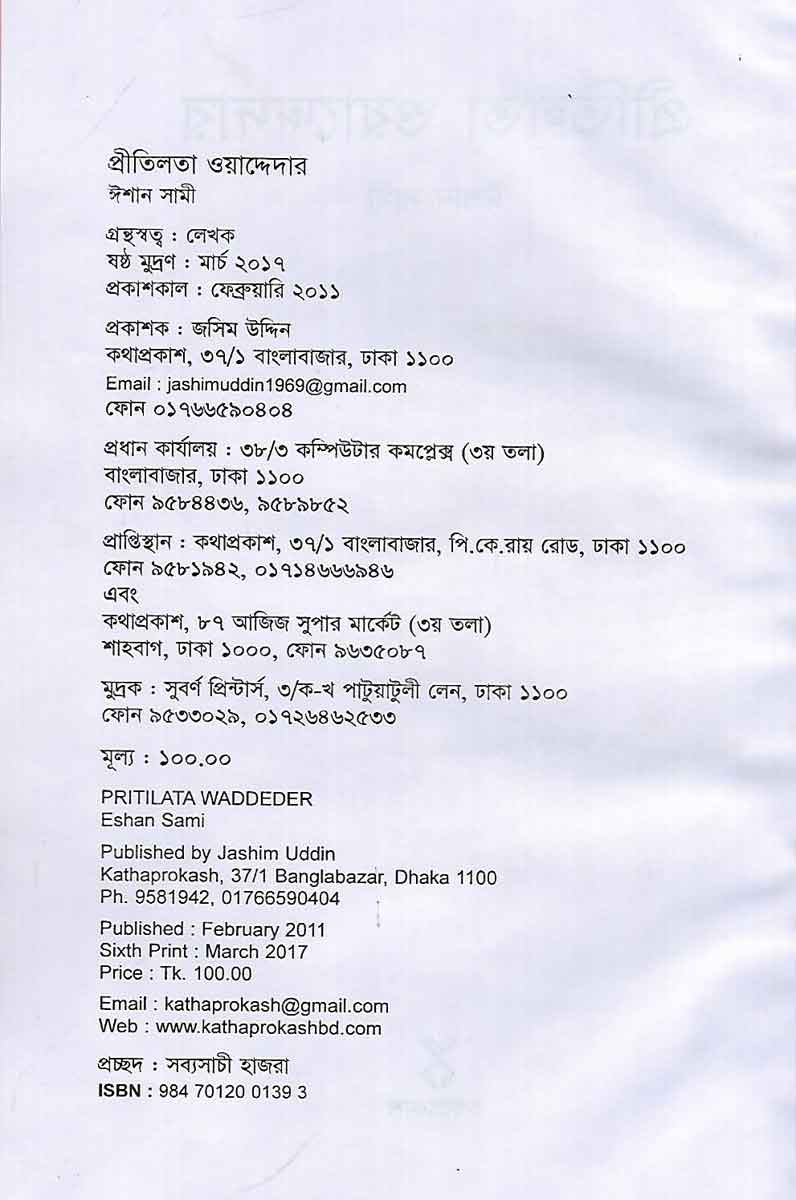 প্রীতিলতা ওয়াদ্দেদার
ঈশান সামী
গ্রন্থস্বত্ব : লেখক
ষষ্ঠ মুদ্রণ : মার্চ ২০১৭
প্রকাশকাল : ফেব্রুয়ারি ২০১১
প্রকাশক : জসিম উদ্দিন
কথাপ্রকাশ, ৩৭/১ বাংলাবাজার, ঢাকা ১১০০
Email : jashimuddin1969@gmail.com
ফোন ০১৭৬৬৫৯০৪০৪
প্রধান কার্যালয় : ৩৮/৩ কম্পিউটার কমপ্লেক্স (৩য় তলা)
বাংলাবাজার, ঢাকা ১১০০
ফোন ৯৫৮৪৪৩৬, ৯৫৮৯৮৫২
প্রাপ্তিস্থান : কথাপ্রকাশ, ৩৭/১ বাংলাবাজার, পি.কে.রায় রোড, ঢাকা ১১০০
ফোন ৯৫৮১৯৪২, ০১৭১৪৬৬৬৯৪৬
এবং
কথাপ্রকাশ, ৮৭ আজিজ সুপার মার্কেট (৩য় তলা)
শাহবাগ, ঢাকা ১০০০, ফোন ৯৬৩৫০৮৭
মুদ্রক : সুবর্ণ প্রিন্টার্স, ৩/ক-খ পাটুয়াটুলী লেন, ঢাকা ১১০০
ফোন ৯৫৩৩০২৯, ০১৭২৬৪৬২৫৩৩
মূল্য : ১০০.০০
PRITILATA WADDEDER
Eshan Sami
Published by Jashim Uddin
Kathaprokash, 37/1 Banglabazar, Dhaka 1100
Ph. 9581942, 01766590404
Published : February 2011
Sixth Print : March 2017
Price : Tk. 100.00
Email : kathaprokash@gmail.com
Web : www.kathaprokashbd.com
প্রচ্ছদ : সব্যসাচী হাজরা
ISBN : 984 70120 0139 3